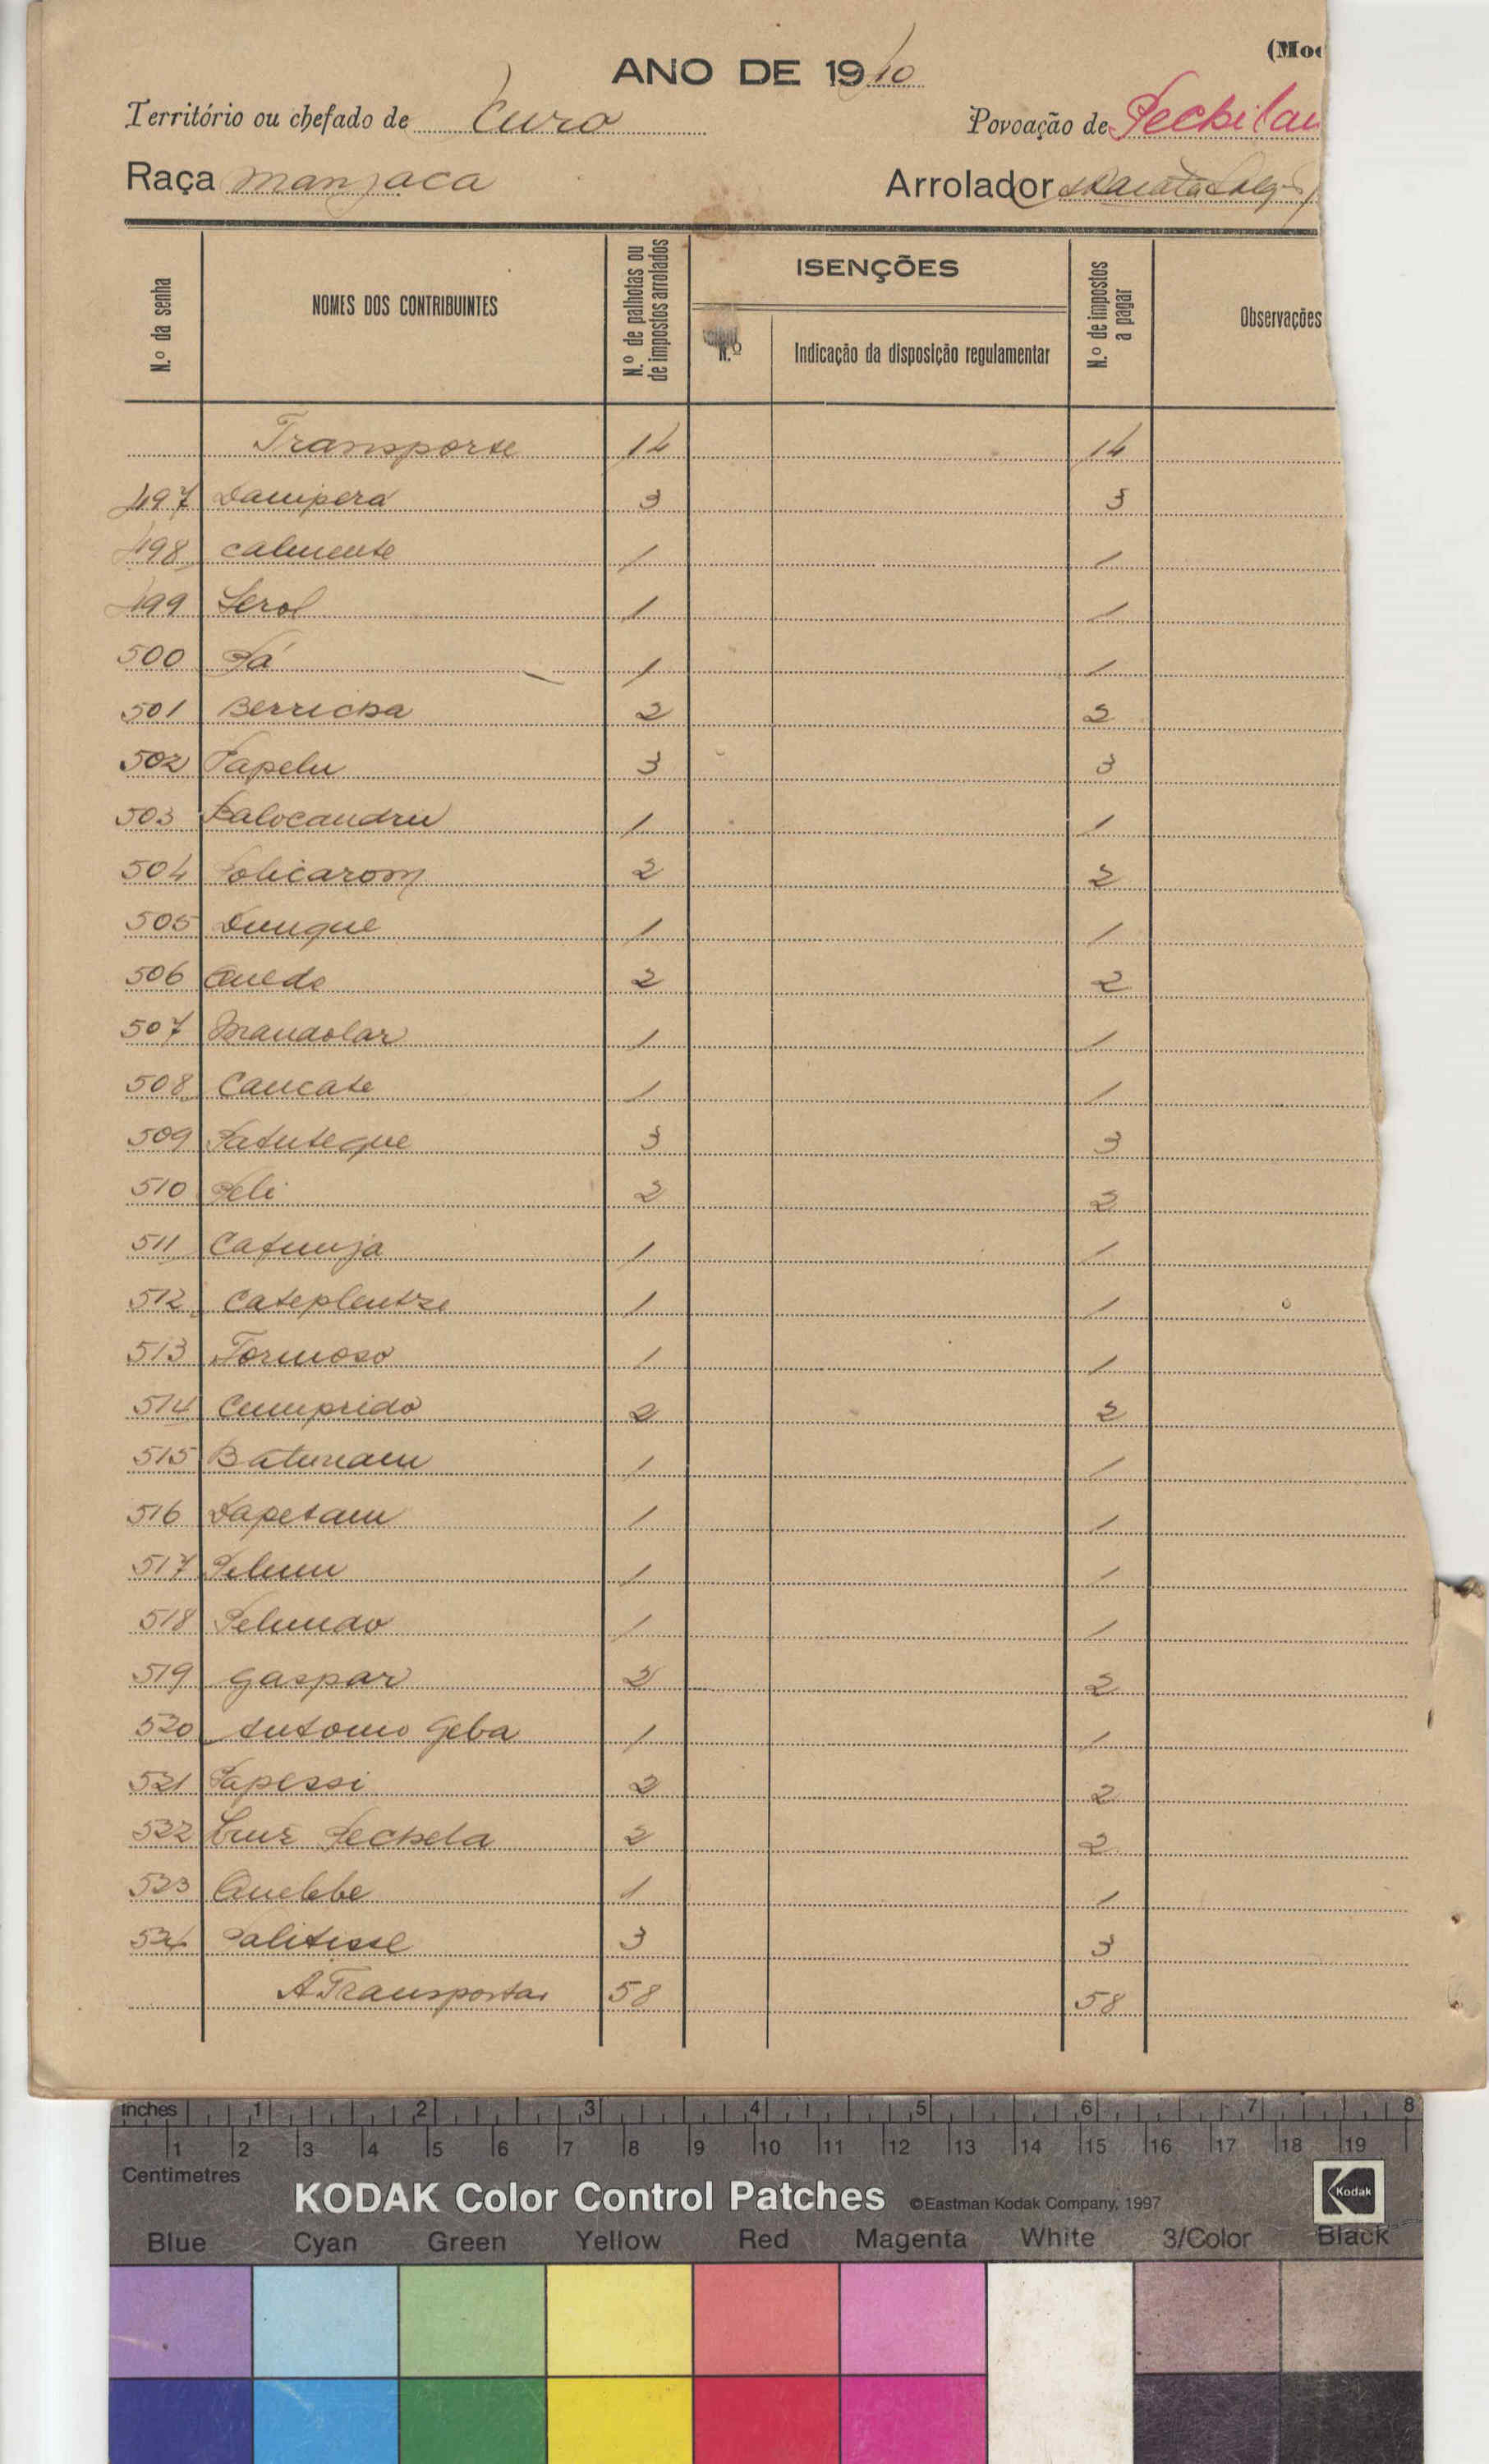 (Mod
ANO DE 1910
Território ou chefado de Curo
Povoação de Pechilau
Raça manjaca
Arrolador
N.º da senha
NOMES DOS CONTRIBUINTES
N.º de palhotas ou de impostos arrolados
ISENÇÕES
N.º
Indicação da disposição regulamentar
N.º de impostos a pagar
Observações
Transporte 14 14
497 Dampera 3 3
498 calmente 1 1
499 Serol 1 1
500 Pá 1 1
501 Berricha 2 2
502 Papelu 3 3
503 Balocandru 1 1
504 Policarom 2 2
505 Dunque 1 1
506 Quedo 2 2
507 Mandolar 1 1
508 Caucate 1 1
509 Patuteque 3 3
510 Peli 2 2
511 Catunja 1 1
512 Cateplentre 1 1
513 Formoso 1 1
514 Cumprido 2 2
515 Batunam 1 1
516 Dapetam 1 1
517 Pelum 1 1
518 Pelundo 1 1
519 Gaspar 2 2
520 Antonio Geba 1 1
521 Papessi 2 2
522 Cruz Pechela 2 2
523 Quebbe 1 1
524 Palitisse 3 3
A Transportar 58 58
inches 1 2 3 4 5 6 7 8
1 2 3 4 5 6 7 8 9 10 11 12 13 14 15 16 17 18 19
Centimetres
KODAK Color Control Patches ©Eastman Kodak Company, 1997 Kodak
Blue Cyan Green Yellow Red Magenta White 3/Color Black